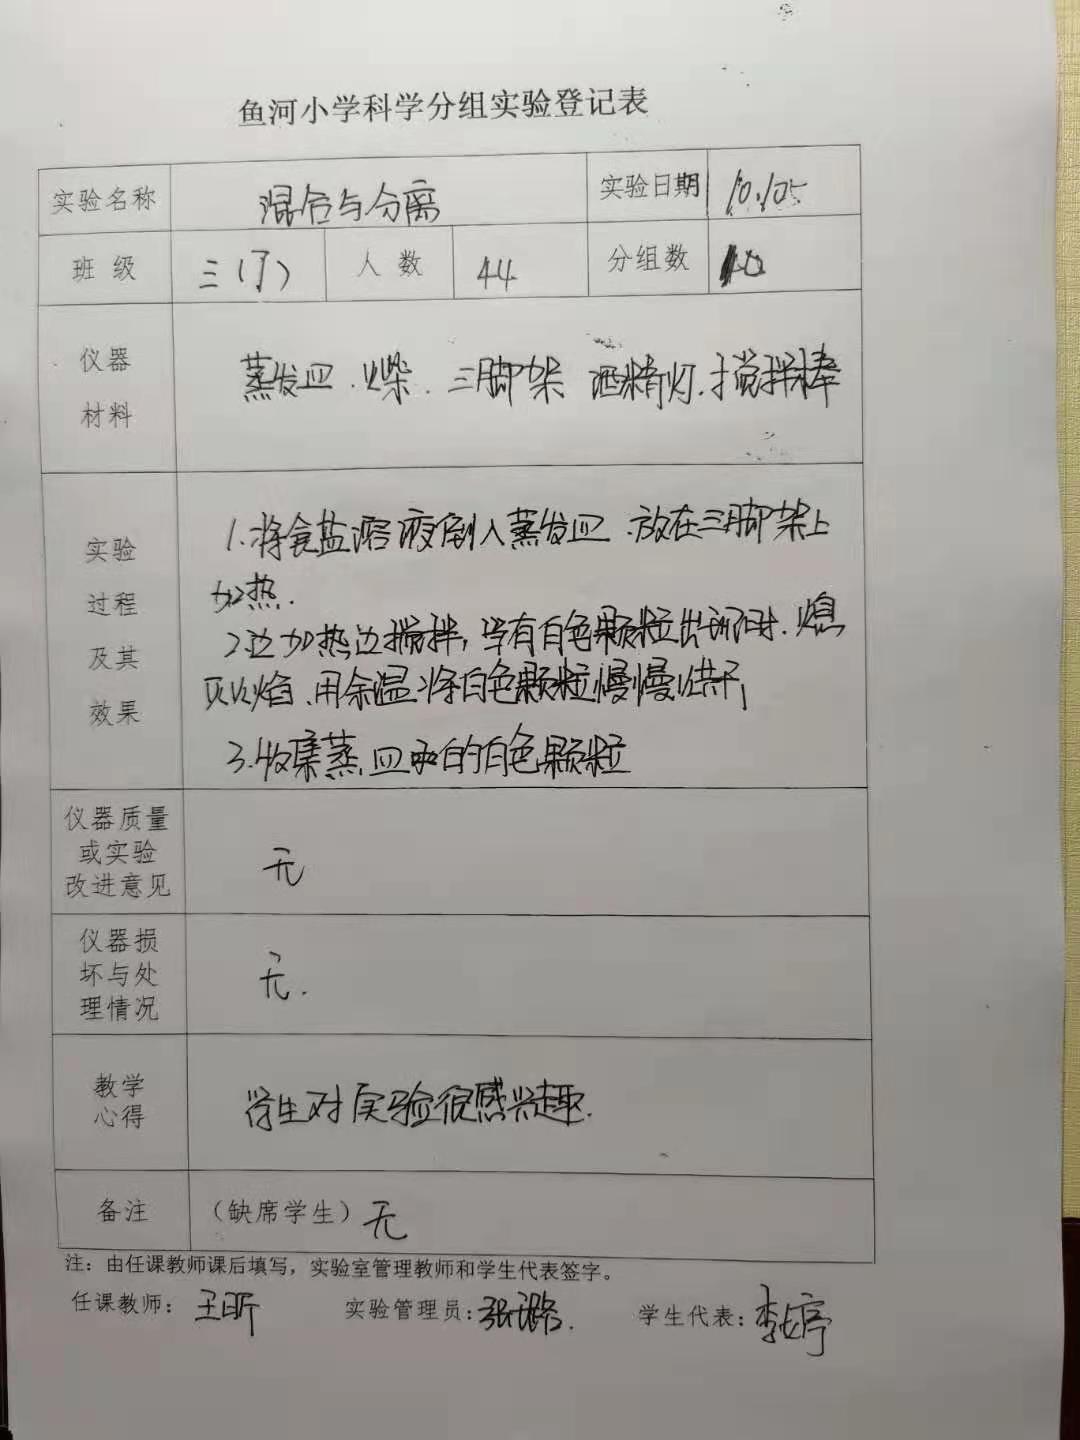 鱼河小学科学分组实验登记表
实验名称 混合与分离 实验日期
班 级 三(丁) 人 数 44 分组数 10
仪器
材料
蒸发皿、火柴、三脚架 酒精灯、搅拌棒
实验
过程
及其
效果
1.将食盐溶液倒入蒸发皿、放在三脚架上
加热.
2.边加热边搅拌,当有白色颗粒出现时、熄
灭火焰、用余温将白色颗粒慢慢烘干
3.收集蒸皿中的白色颗粒
仪器质量
或实验
改进意见
无
仪器损
坏与处
理情况
无.
教学
心得
学生对实验很感兴趣.
备注 (缺席学生) 无
注:由任课教师课后填写,实验室管理教师和学生代表签字。
任课教师: 王昕 实验管理员: 张璐. 学生代表: